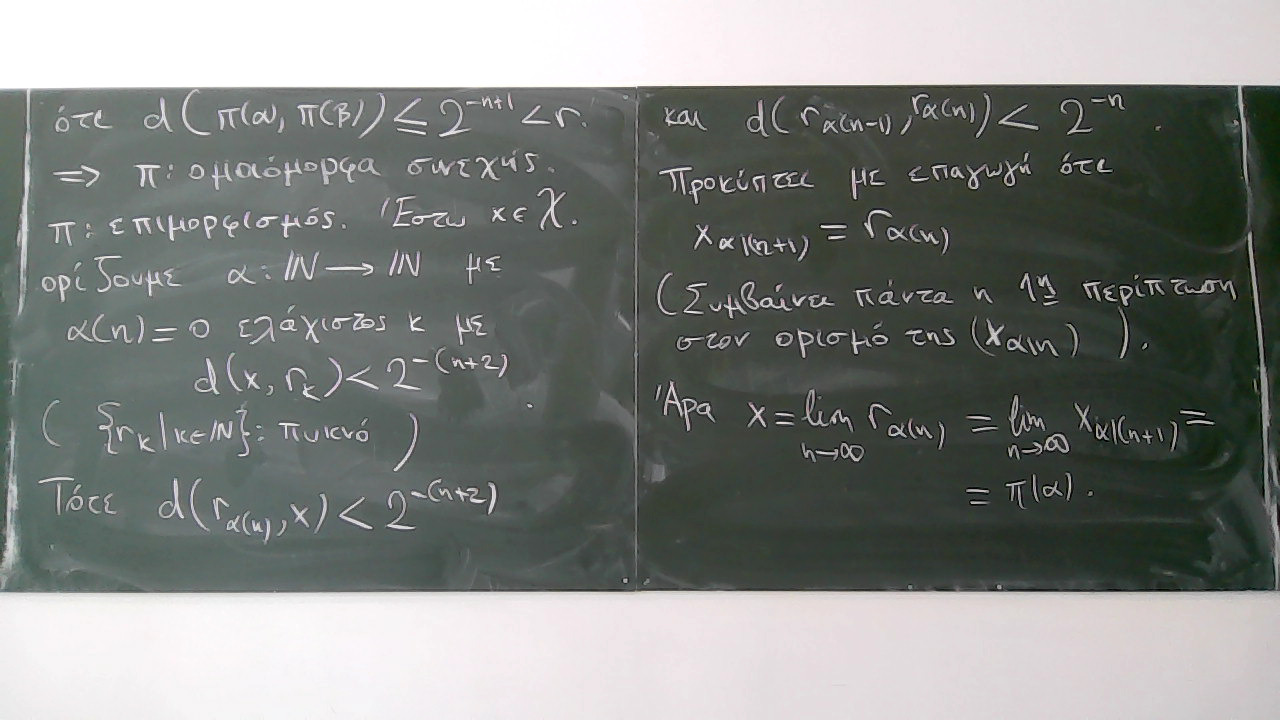 ότι d(π(α), π(β)) ≤ 2^{-n+1} < r.
⇒ π: ομοιόμορφα συνεχής.
π: επιμορφισμός. Έστω x ∈ X.
ορίζουμε α: ℕ → ℕ με
α(n) = ο ελάχιστος k με
d(x, r_k) < 2^{-(n+2)}
( {r_k | k∈ℕ}: πυκνό )
Τότε d(r_{α(n)}, x) < 2^{-(n+2)}
και d(r_{α(n-1)}, r_{α(n)}) < 2^{-n}.
Προκύπτει με επαγωγή ότι
x_{α|(n+1)} = r_{α(n)}
(Συμβαίνει πάντα η 1η περίπτωση
στον ορισμό της (x_{α|n}) ).
Άρα x = lim_{n→∞} r_{α(n)} = lim_{n→∞} x_{α|(n+1)} =
= π(α).